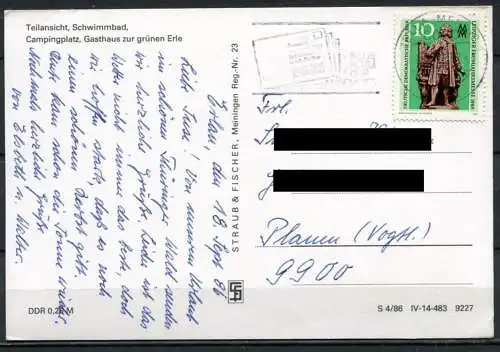 Teilansicht, Schwimmbad,
Campingplatz, Gasthaus zur grünen Erle
Erlau, den 18. Sept. 86
Liebe Tina! Von unserem Urlaub
im schönen Thüringer Wald senden
wir herzliche Grüße. Leider ist das
Wetter nicht immer das beste, doch
wir hoffen stark, daß es noch
einen schönen Herbst gibt.
Heut kam schon die Sonne wieder.
Nochmals herzliche Grüße
von Elsbeth u. Walter.
DDR 0,20 M
STRAUB & FISCHER, Meiningen Reg.-Nr. 23
10
DEUTSCHE DEMOKRATISCHE REPUBLIK
LEIPZIGER FRÜHJAHRSMESSE 1985
MM
Frl.
Plauen (Vogtl.)
9900
S 4/86 IV-14-483 9227